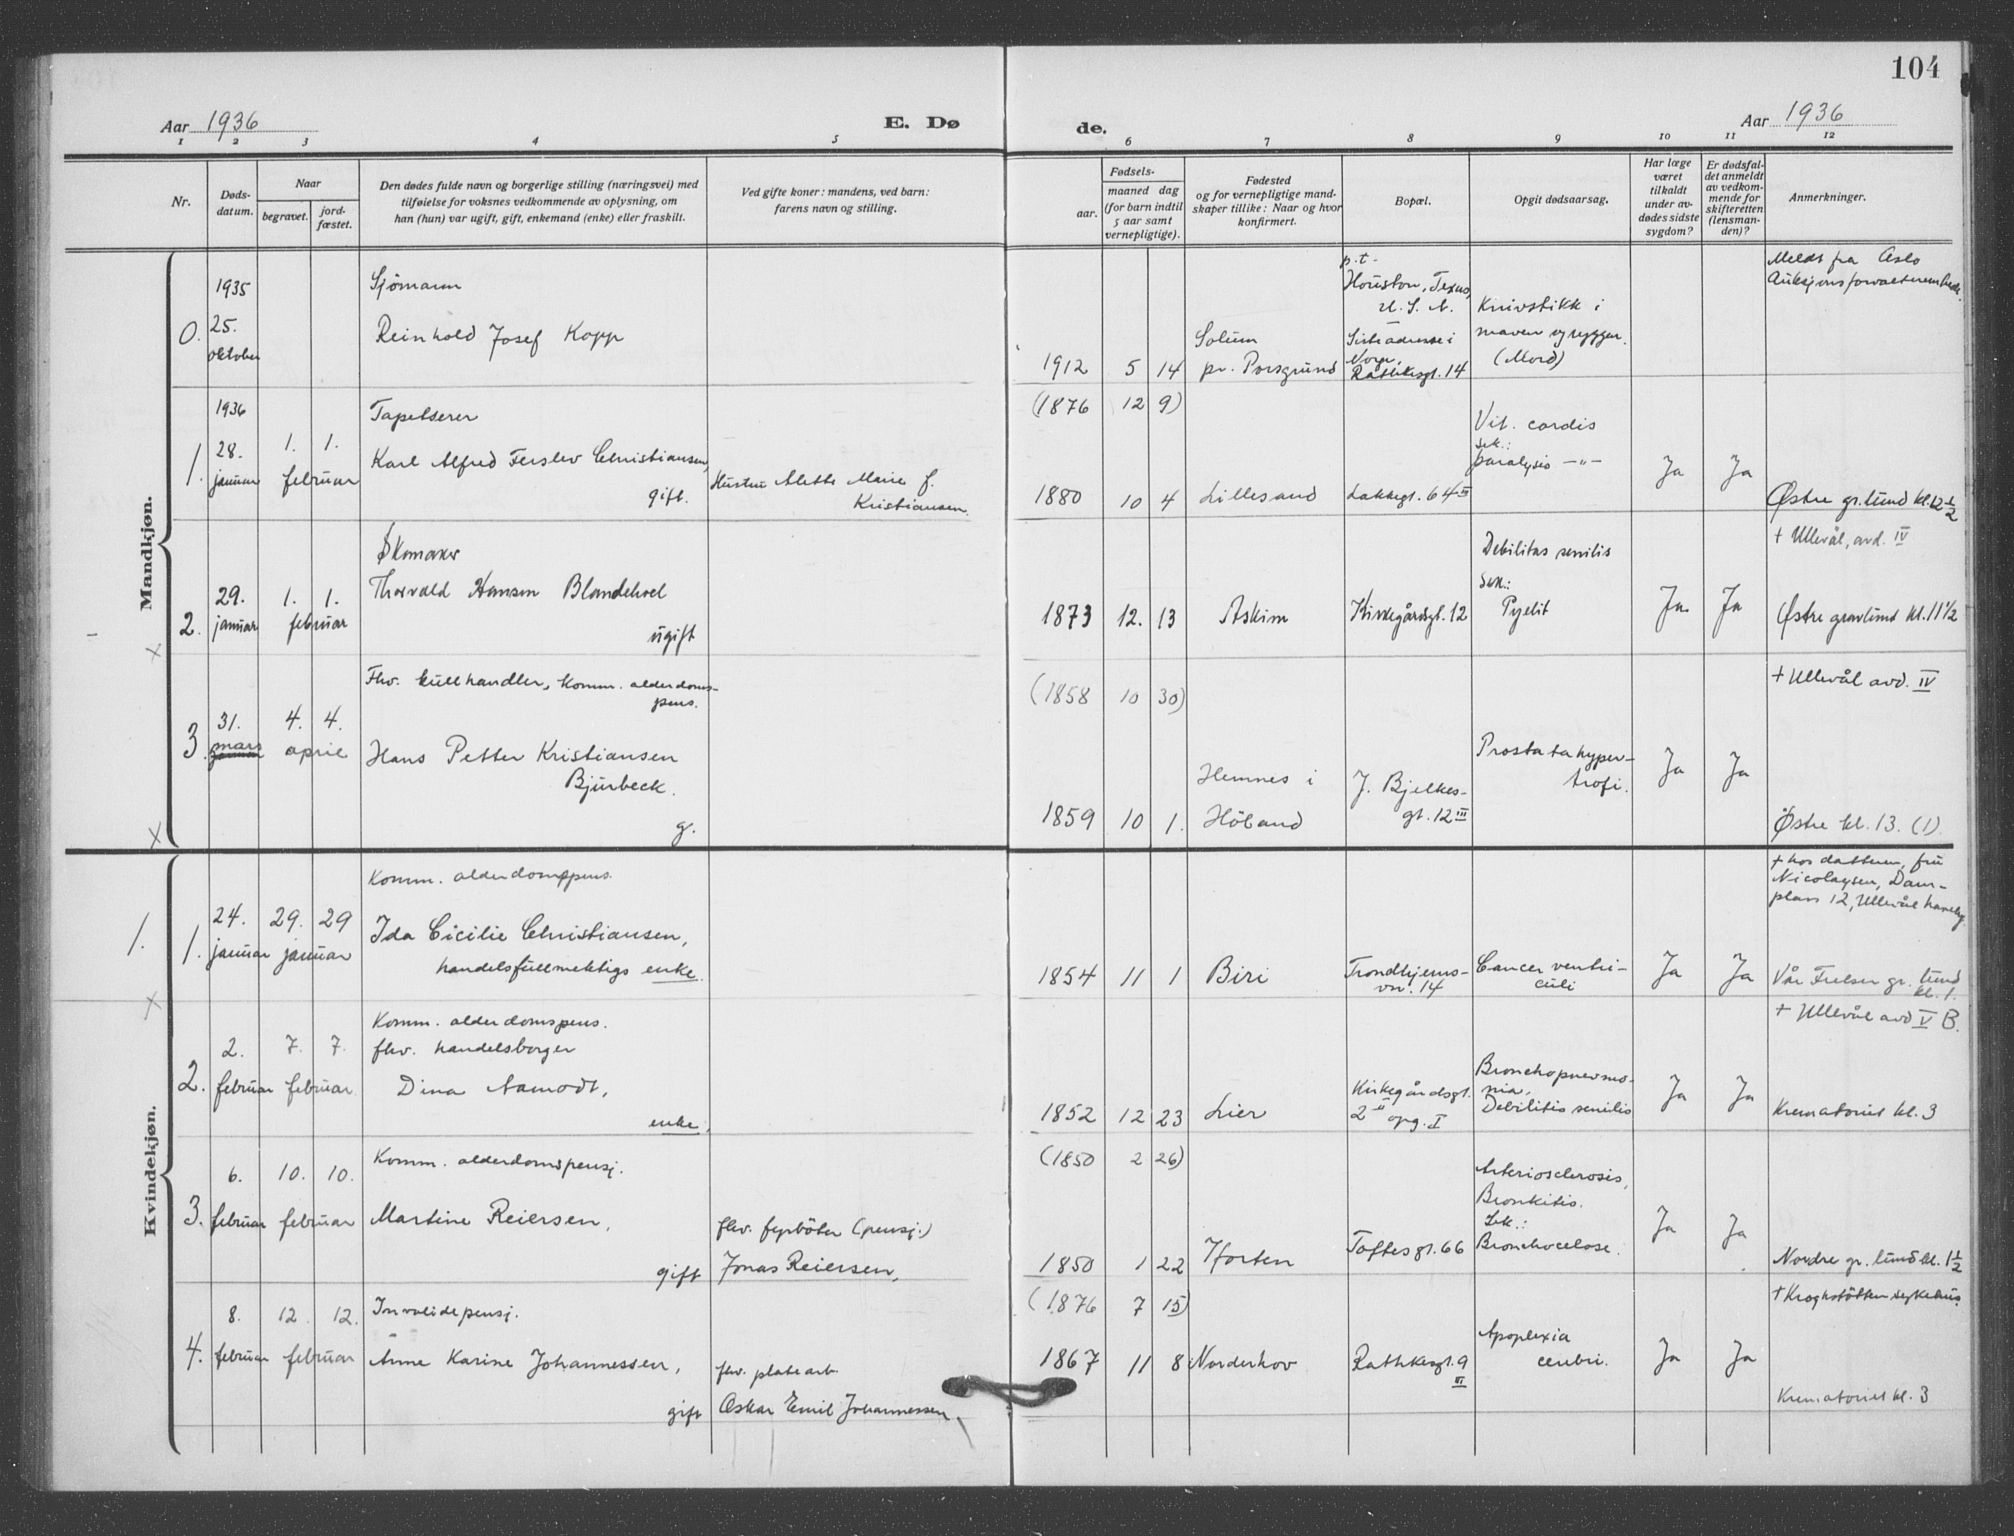 104
Aar 1936
E. Dø
de.
Aar 1936
1 2 3 4 5 6 7 8 9 10 11 12
Nr.
Døds-
datum.
Naar
begravet.
jord-
fæstet.
Den dødes fulde navn og borgerlige stilling (næringsvei) med
tilføielse for voksnes vedkommende av oplysning, om
han (hun) var ugift, gift, enkemand (enke) eller fraskilt.
Ved gifte koner: mandens, ved barn:
farens navn og stilling.
Fødsels-
aar.
maaned dag
(for barn indtil
5 aar samt
vernepligtige).
Fødested
og for vernepligtige mand-
skaper tillike: Naar og hvor
konfirmert.
Bopæl.
Opgit dødsaarsag.
Har læge
været
tilkaldt
under av-
dødes sidste
sygdom?
Er dødsfal-
det anmeldt
av vedkom-
mende for
skifteretten
(lensman-
den)?
Anmerkninger.
Mandkjøn.
0.
1935
25.
oktober
Sjømann
Reinhold Josef Kopp
1912 5 14
Solum
pr. Porsgrund
p.t.
Houston, Texas,
U. S. A.
Siste adresse i
Norge,
Rathkesgt. 14
Knivstikk i
maven og ryggen.
(Mord)
Meldt fra Oslo
1.
1936
28. 1. 1.
januar februar
Tapetserer
Karl Alfred Ferslev Christiansen,
gift.
Hustru Alette Marie f.
Kristiansen
(1876 12 9)
1880 10 4
Lillesand
Lakkegt. 64 III
Vit. cordis
Sek.:
paralysis -"-
Ja Ja
Østre gr.lund kl. 12 1/2
2.
29. 1. 1.
januar februar
Skomaker
Thorvald Hansen
ugift
1873 12. 13
Askim
Kirkegårdsgt. 12
Debilitas senilis
Sek.:
Pyelit
Ja. Ja
+ Ullevål, avd. IV
Østre gravlund kl. 11 1/2
3.
31. 4. 4.
mars januar april
Fhv. kullhandler, Komm. alderdoms-
pens.
Hans Petter Kristiansen
Bjurbeck.
g.
(1858 10 30)
1859 10 1.
Hemnes i
Höland
J. Bjelkes-
gt. 12 III
Prostatahyper-
trofi.
Ja Ja
+ Ullevål avd. IV
Østre kl. 13. (1)
Kvindekjøn.
1.
1.
24. 29. 29
januar januar
Komm. alderdomspens.
Ida Cicilie Christiansen,
handelsfullmektigs enke.
1854 11 1
Biri
Trondhjems-
vn. 14
Cancer ventri-
culi
Ja Ja
+ hos datteren, fru
Nicolaysen, Dam-
plass 12, Ullevål haveby
Vår Frelser gr. lund
kl. 1.
2.
2. 7. 7.
februar februar
Komm. alderdomspens.
fhv. handelsborger
Dina Aamodt,
enke.
1852 12 23
Lier
Kirkegårdsgt.
2 II opg. I
Bronchopneumo-
nia,
Debilitis senilis
Ja Ja
+ Ullevål avd V B.
Krematoriet kl. 3
3.
6. 10. 10.
februar februar
Komm. alderdomspensj.
Martine Reiersen,
gift
fhv. fyrböter (pensj.)
Jonas Reiersen,
(1850 2 26)
1850 1 22
Horten
Toftesgt. 66
Arteriosclerosis,
Bronkitis.
Sek.:
Ja Ja
Nordre gr. lund kl. 1 1/2
4.
8. 12. 12.
februar februar
Invalidepensj.
Anne Karine Johannessen,
gift
fhv. platearb.
Oskar Emil Johannessen,
(1876 7 15)
1867 11 8
Norderhov
Rathkesgt. 9
III
Apoplexia
cerebri.
Ja Ja
+ Kroghstötten sykehus
Krematoriet kl. 3